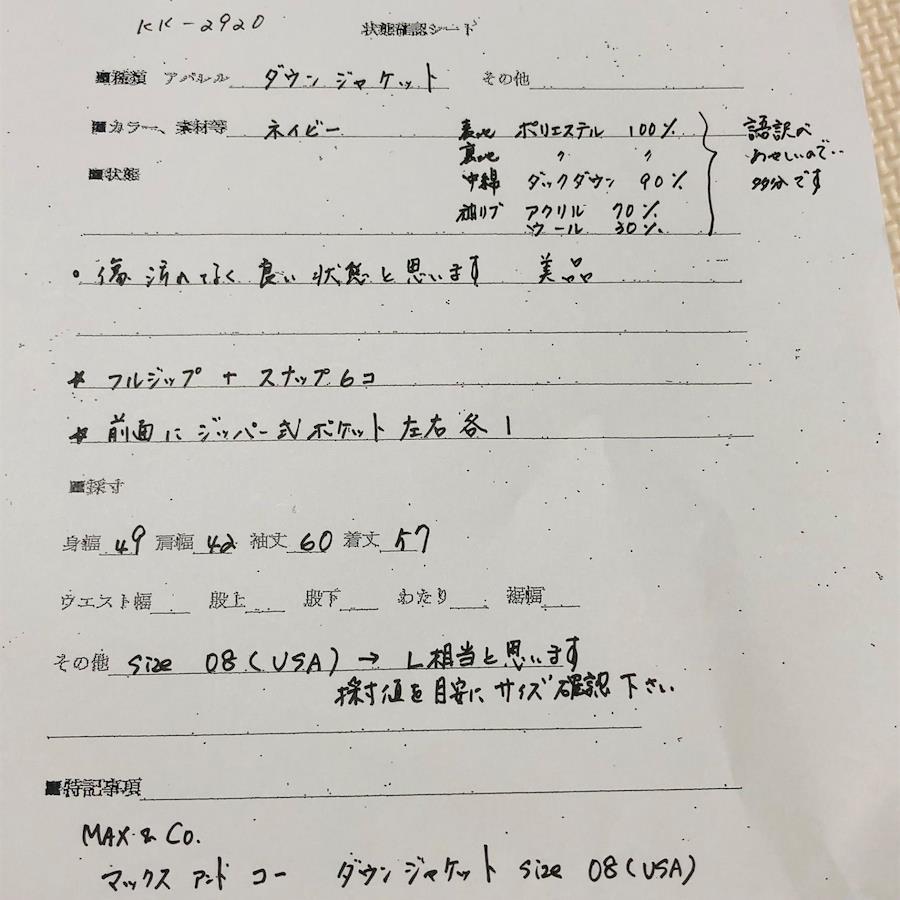 KK-2920
状態確認シート
■種類 アパレル ダウンジャケット その他
■カラー、素材等 ネイビー 表地 ポリエステル 100%
裏地 〃 〃
■状態 中綿 ダックダウン 90%
袖リブ アクリル 70%
ウール 30%
語訳が
あやしいので‥
多分です
• 傷汚れなく良い状態と思います 美品
* フルジップ + スナップ6コ
* 前面にジッパー式ポケット左右各1
■採寸
身幅 49 肩幅 42 袖丈 60 着丈 57
ウエスト幅 股上 股下 わたり 裾幅
その他 size 08(USA) → L相当と思います
採寸値を目安にサイズ確認下さい
■特記事項
MAX & CO.
マックス アンド コー ダウンジャケット size 08(USA)